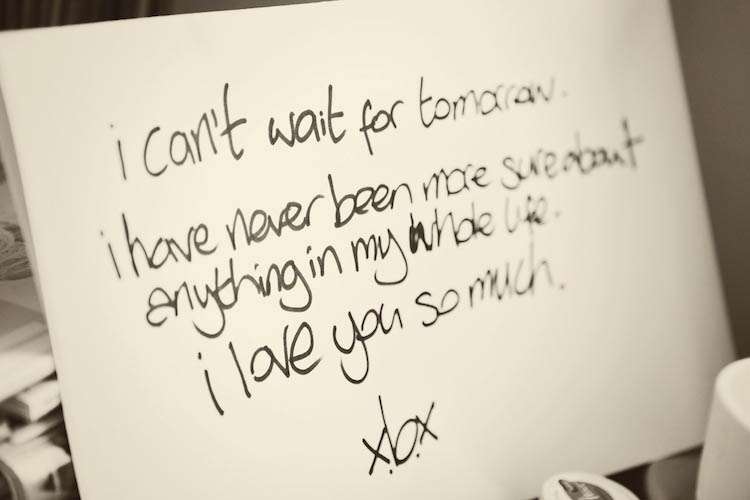 i can't wait for tomorrow.
i have never been more sure about
anything in my whole life.
i love you so much.
x.b.x